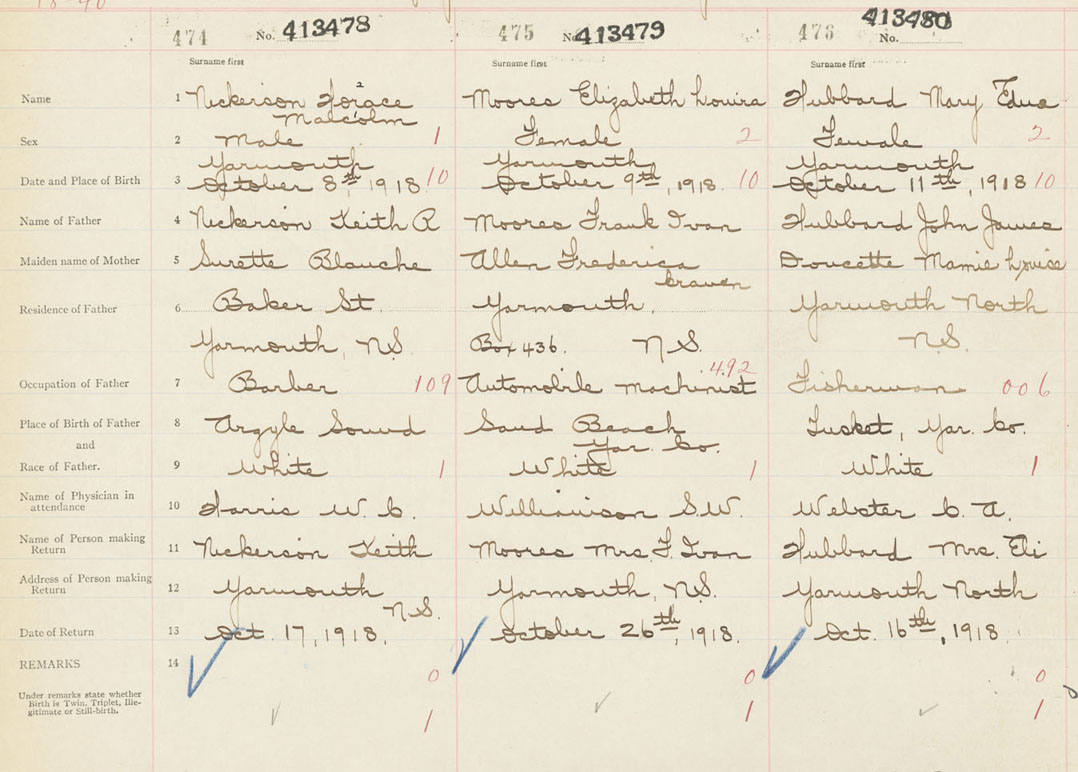 18-40
474 No. 413478 475 No. 413479 476 No. 413480
Surname first Surname first Surname first
Name 1 Nickerson Horace Moores Elizabeth Louira Hubbard Mary Edua
2
Malcolm
Sex 2 Male 1 Female 2 Female 2
Yarmouth Yarmouth Yarmouth
Date and Place of Birth 3 October 8th 1918 10 October 9th, 1918. 10 October 11th, 1918 10
Name of Father 4 Nickerson Keith R Moores Frank Ivan Hubbard John James
Maiden name of Mother 5 Surette Blanche Allen Frederica Doucette Mamie Louise
Craven
Residence of Father 6 Baker St. Yarmouth. Yarmouth North
Yarmouth, N.S. Box 436. N.S. N.S.
492
Occupation of Father 7 Barber 109 Automobile machinist Fisherman 006
Place of Birth of Father 8 Argyle Sound Sand Beach Tusket, Yar. Co.
and Yar. Co.
Race of Father. 9 White 1 White 1 White 1
Name of Physician in
attendance 10 Harris W. C. Williamson S.W. Webster C. A.
Name of Person making
Return 11 Nickerson Keith Moores Mrs. F. Ivan Hubbard Mrs. Eli
Address of Person making
Return 12 Yarmouth Yarmouth, N.S. Yarmouth North
N.S.
Date of Return 13 Oct. 17, 1918. October 26th, 1918. Oct. 16th, 1918.
REMARKS 14
0 0 0
Under remarks state whether
Birth is Twin, Triplet, Ille-
gitimate or Still-birth.
1 1 1